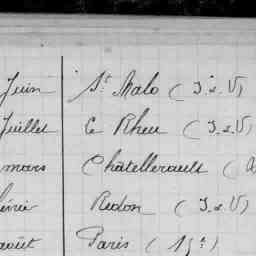 Juin St Malo ( I. & V)
Juillet Le Rheu ( I. & V)
mars Châtellerault (
Redon ( I. & V)
août Paris ( 15e )